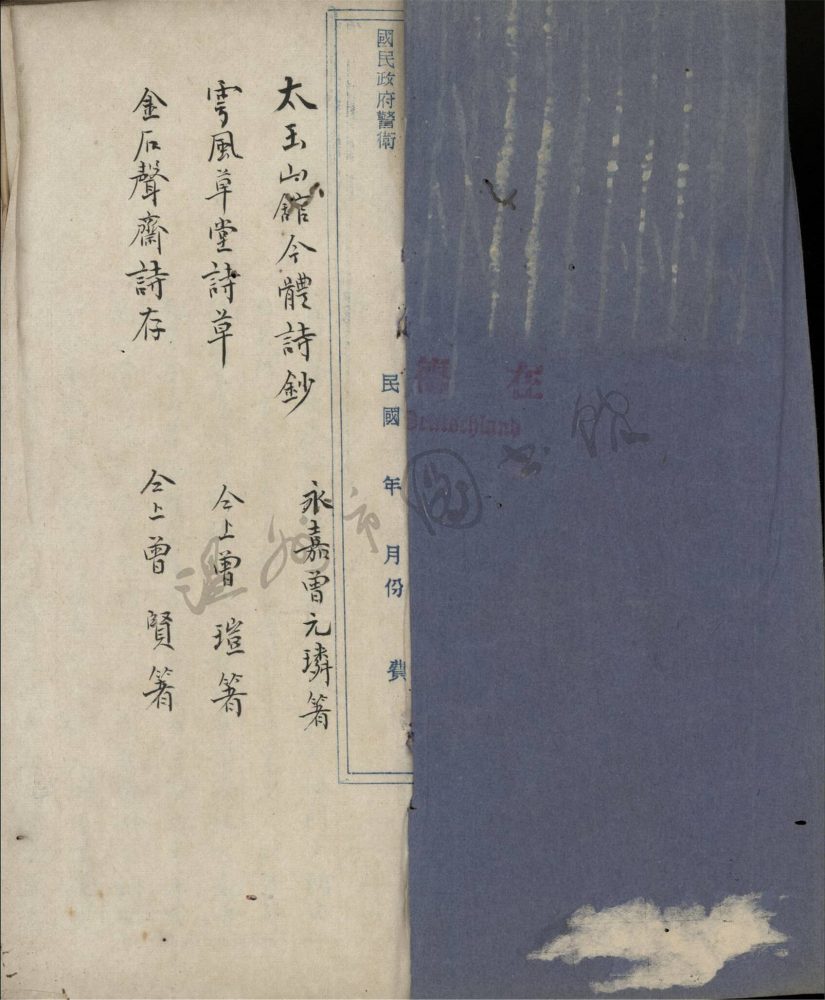 國民政府警衛
民國 年 月份 費
太玉山館今體詩鈔 永嘉曾元璘著
雩風草堂詩草 仝上曾 瑄著
金石聲齋詩存 仝上曾 賢著
在
Deutschland
溫州市圖书館